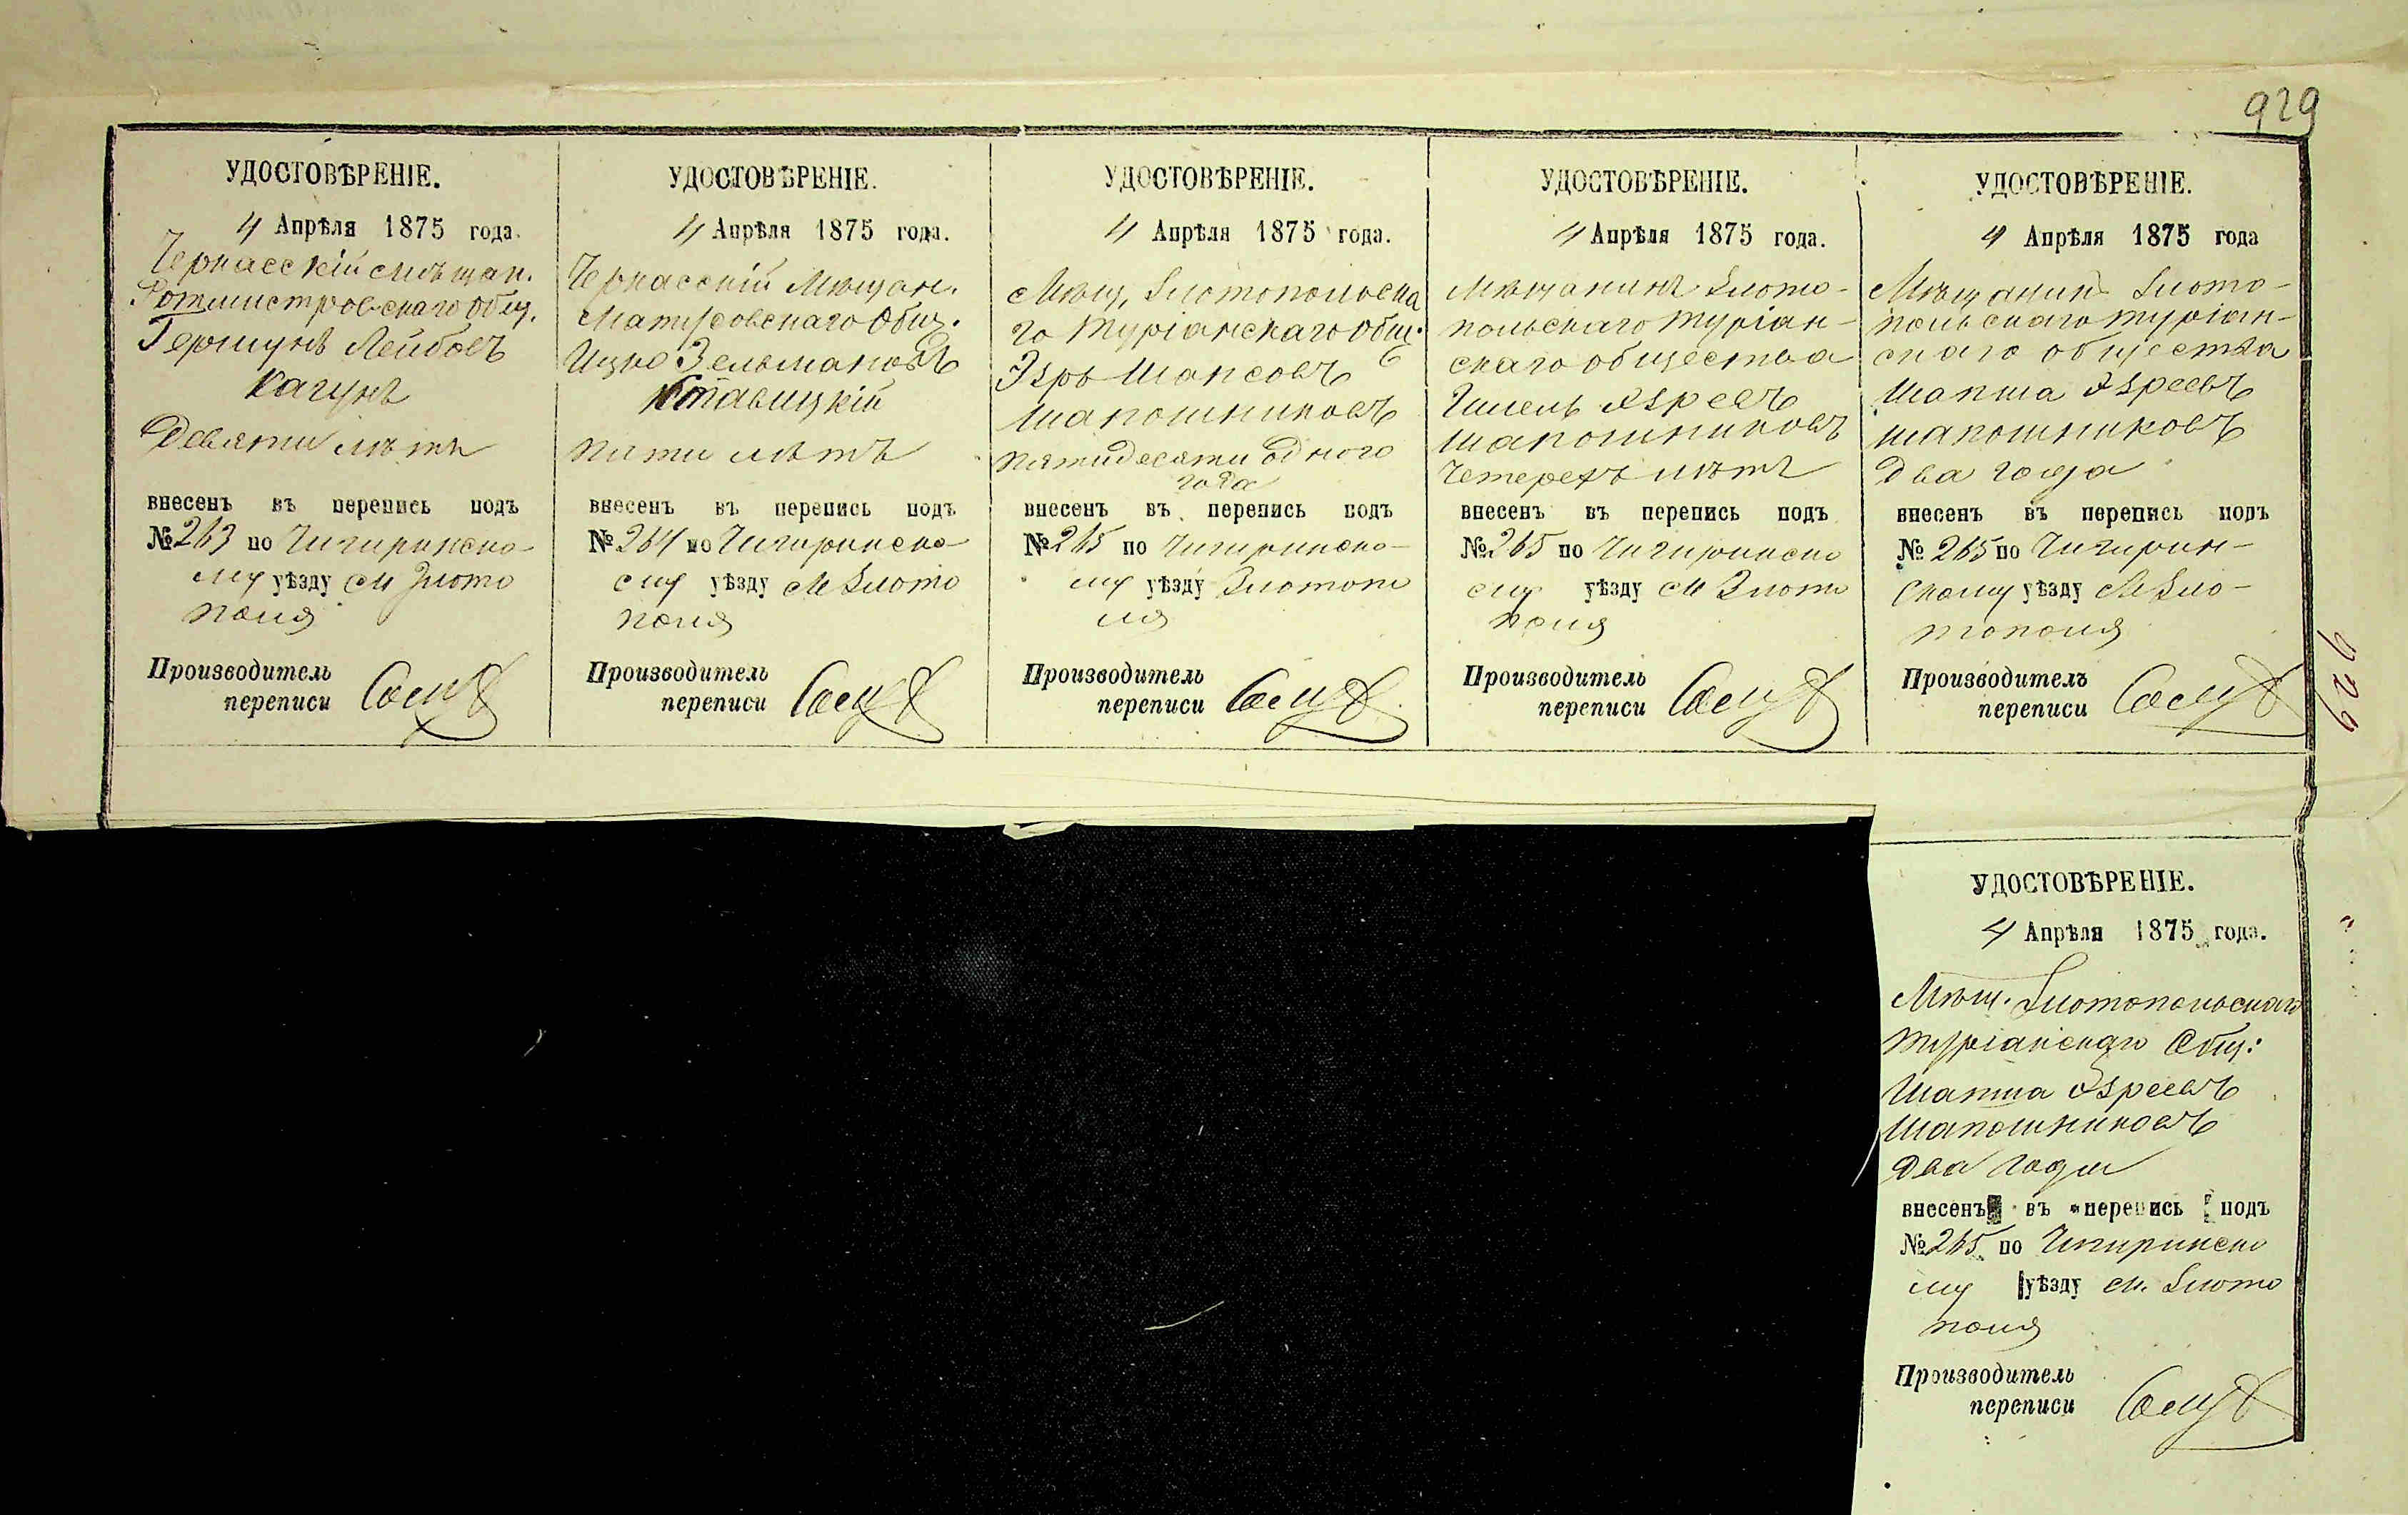 929
УДОСТОВѢРЕНІЕ.
4 Апрѣля 1875 года.
Черкасскій мѣщан.
Ротмистровскаго Общ.
Гершунъ Лейбовъ
Кагунъ
Девяти лѣтъ
внесенъ въ перепись подъ
№ 263 по Чигиринско-
му уѣзду м Злото
поля
Производитель
переписи
УДОСТОВѢРЕНІЕ.
4 Апрѣля 1875 года.
Черкасскій Мѣщан.
Матусовскаго Общ.
Ицко Зельмановъ
Ставицкій
пяти лѣтъ
внесенъ въ перепись подъ
№ 264 по Чигиринско-
му уѣзду м Злото
поля
Производитель
переписи
УДОСТОВѢРЕНІЕ.
4 Апрѣля 1875 года.
Мѣщ. Злотопольска
го Туріанскаго Общ.
Эзръ Шапсовъ
Шапошниковъ
пятидесяти одного
года
внесенъ въ перепись подъ
№ 265 по Чигиринско-
му уѣзду Злотопо
ля
Производитель
переписи
УДОСТОВѢРЕНІЕ.
4 Апрѣля 1875 года.
Мѣщанинъ Злото-
польскаго Туріан-
скаго общества
Гилель Эзреевъ
Шапошниковъ
Четерехъ лѣтъ
внесенъ въ перепись подъ
№ 265 по Чигиринско
му уѣзду м Злото
поля
Производитель
переписи
УДОСТОВѢРЕНІЕ.
4 Апрѣля 1875 года
Мѣщанинъ Злото-
польскаго Туріан-
скаго общества
Шапша Эзреевъ
Шапошниковъ
Два года
внесенъ въ перепись подъ
№ 265 по Чигирин-
скому уѣзду М Зло-
тополя
Производитель
переписи
929
УДОСТОВѢРЕНІЕ.
4 Апрѣля 1875 года.
Мѣщ. Злотопольскаго
Туріанскаго Общ:
Шапша Эзреевъ
Шапошниковъ
Два года
внесенъ въ перепись подъ
№ 265 по Чигиринско
му уѣзду м. Злото
поля
Производитель
переписи